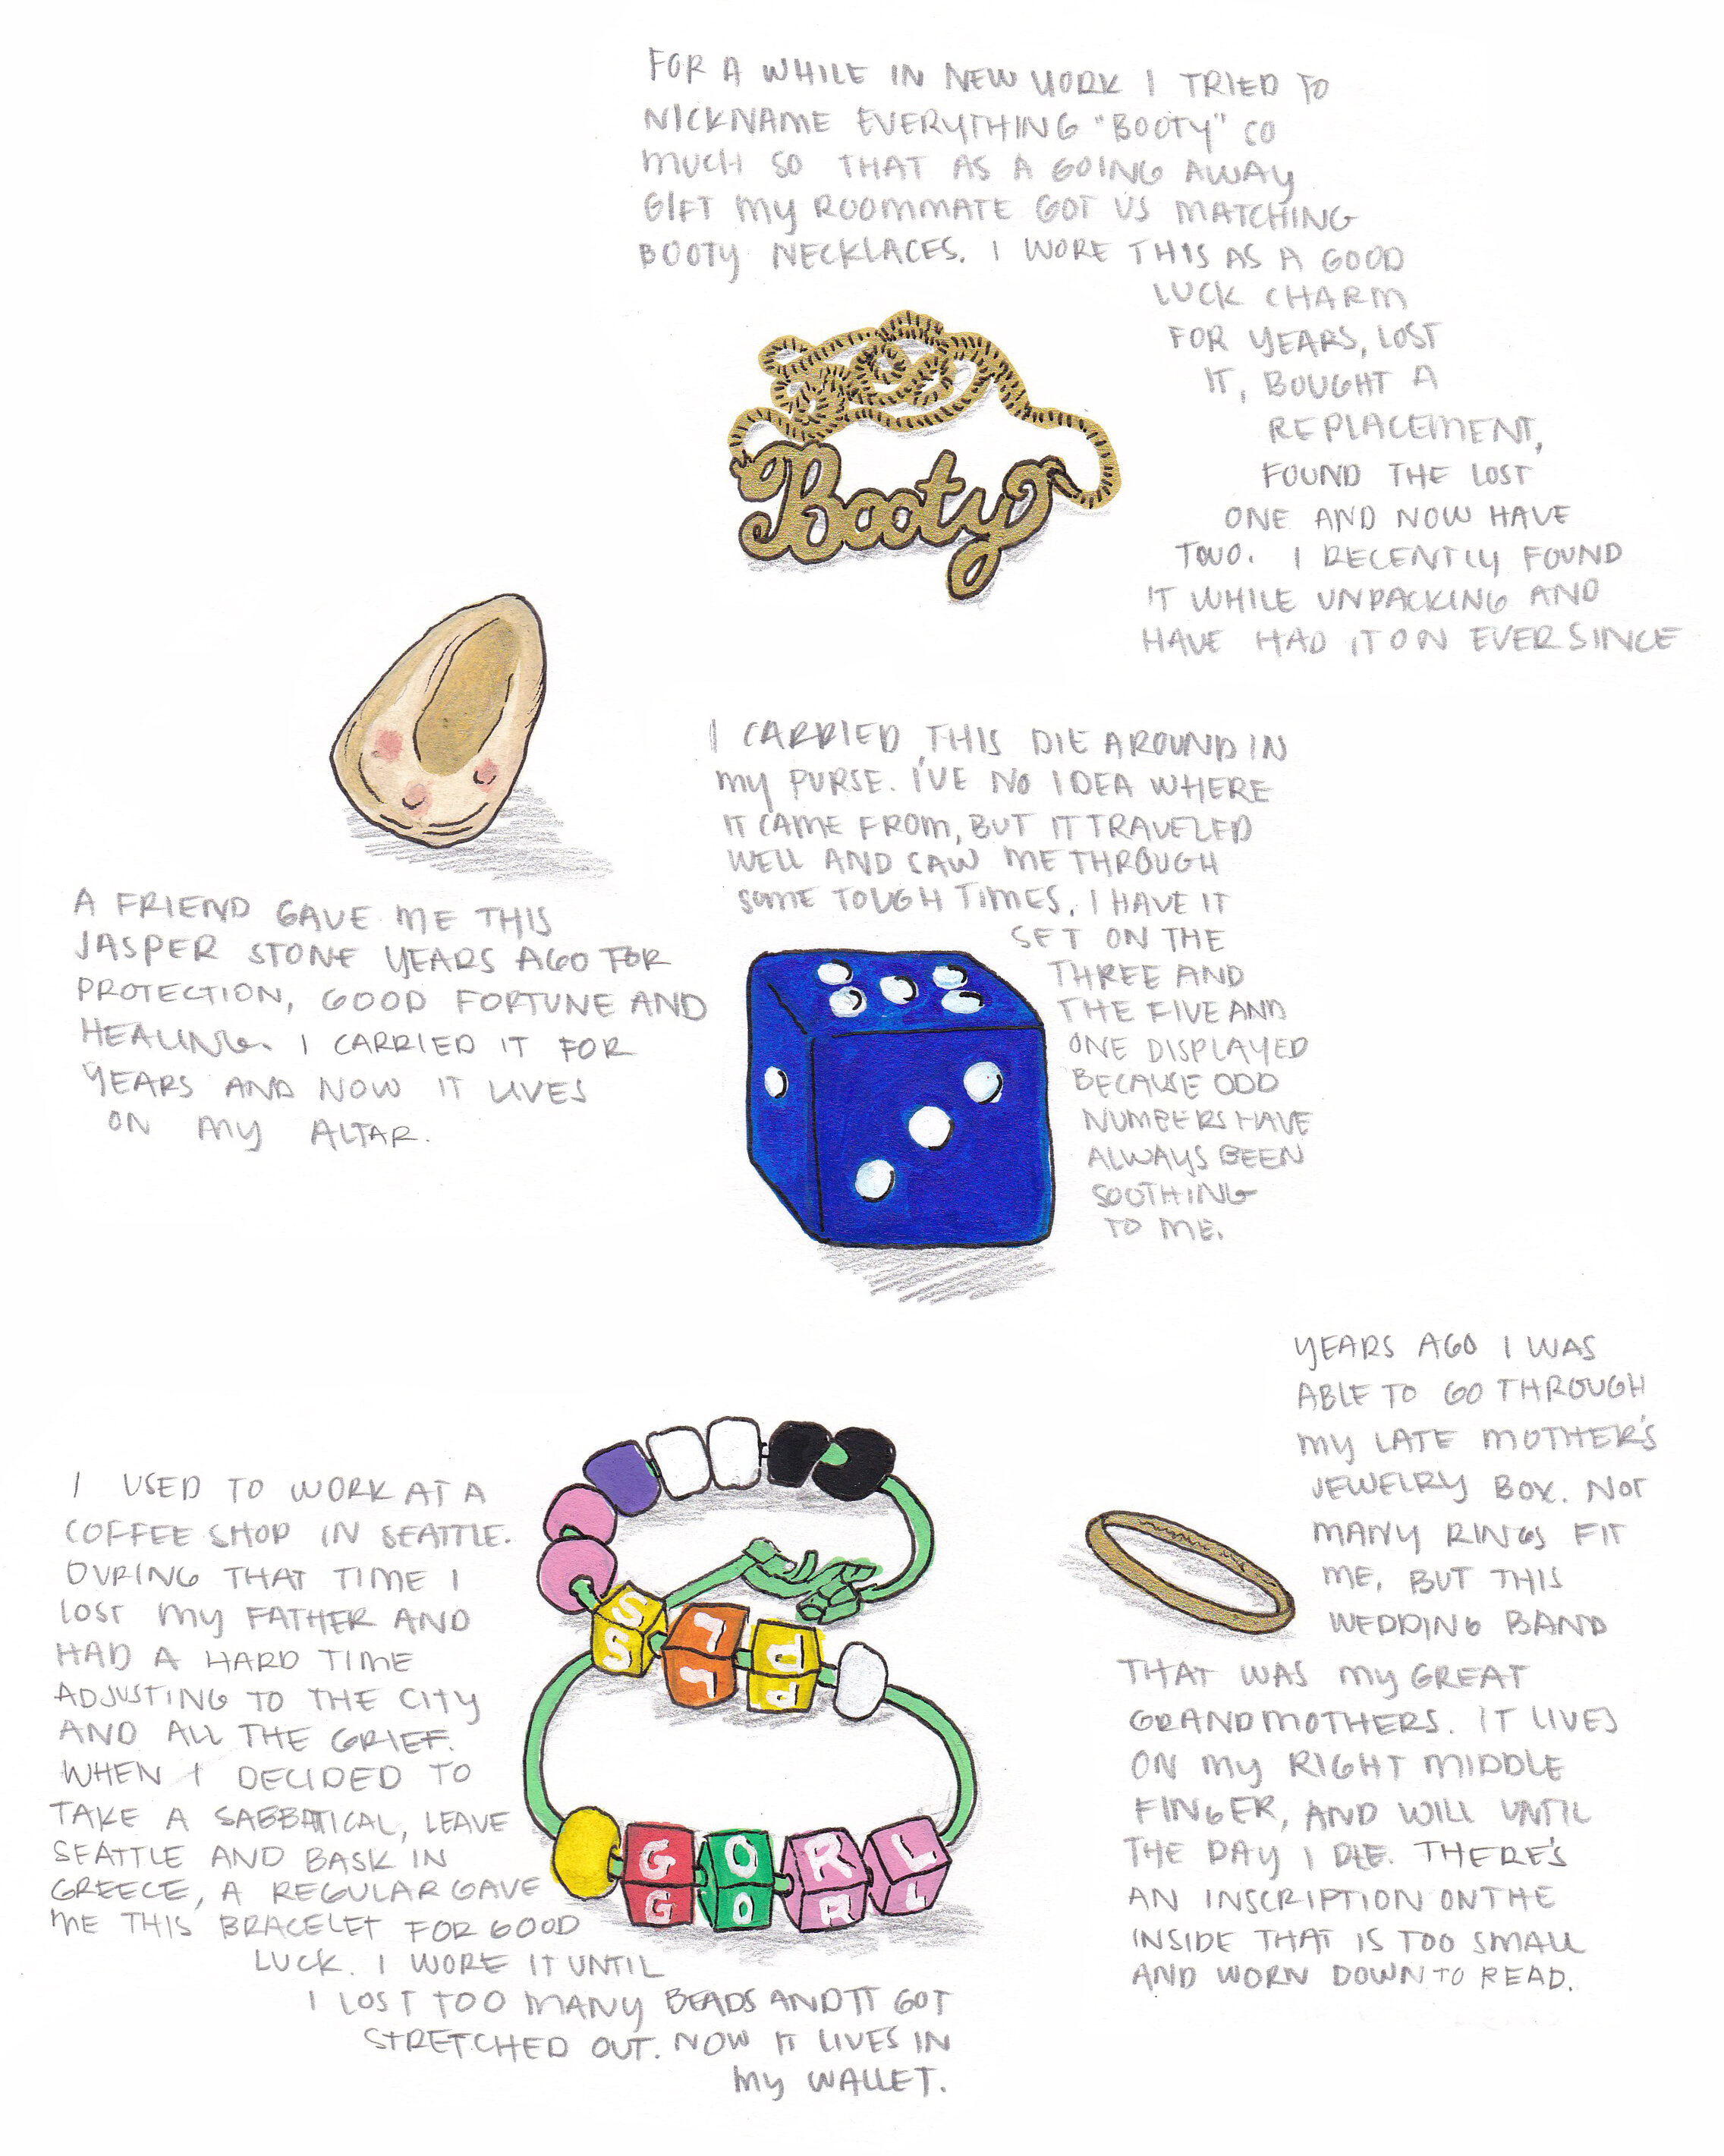 FOR A WHILE IN NEW YORK I TRIED TO
NICKNAME EVERYTHING "BOOTY" SO
MUCH SO THAT AS A GOING AWAY
GIFT MY ROOMMATE GOT US MATCHING
BOOTY NECKLACES. I WORE THIS AS A GOOD
LUCK CHARM
FOR YEARS, LOST
IT, BOUGHT A
REPLACEMENT,
FOUND THE LOST
ONE AND NOW HAVE
TWO. I RECENTLY FOUND
IT WHILE UNPACKING AND
HAVE HAD IT ON EVER SINCE
Booty
A FRIEND GAVE ME THIS
JASPER STONE YEARS AGO FOR
PROTECTION, GOOD FORTUNE AND
HEALING. I CARRIED IT FOR
YEARS AND NOW IT LIVES
ON MY ALTAR.
I CARRIED THIS DIE AROUND IN
MY PURSE. I'VE NO IDEA WHERE
IT CAME FROM, BUT IT TRAVELED
WELL AND SAW ME THROUGH
SOME TOUGH TIMES. I HAVE IT
SET ON THE
THREE AND
THE FIVE AND
ONE DISPLAYED
BECAUSE ODD
NUMBERS HAVE
ALWAYS BEEN
SOOTHING
TO ME.
I USED TO WORK AT A
COFFEE SHOP IN SEATTLE.
DURING THAT TIME I
LOST MY FATHER AND
HAD A HARD TIME
ADJUSTING TO THE CITY
AND ALL THE GRIEF.
WHEN I DECIDED TO
TAKE A SABBATICAL, LEAVE
SEATTLE AND BASK IN
GREECE, A REGULAR GAVE
ME THIS BRACELET FOR GOOD
LUCK. I WORE IT UNTIL
I LOST TOO MANY BEADS AND IT GOT
STRETCHED OUT. NOW IT LIVES IN
MY WALLET.
G O R L
G O R L
YEARS AGO I WAS
ABLE TO GO THROUGH
MY LATE MOTHER'S
JEWELRY BOX. NOT
MANY RINGS FIT
ME, BUT THIS
WEDDING BAND
THAT WAS MY GREAT
GRANDMOTHERS. IT LIVES
ON MY RIGHT MIDDLE
FINGER, AND WILL UNTIL
THE DAY I DIE. THERE'S
AN INSCRIPTION ON THE
INSIDE THAT IS TOO SMALL
AND WORN DOWN TO READ.